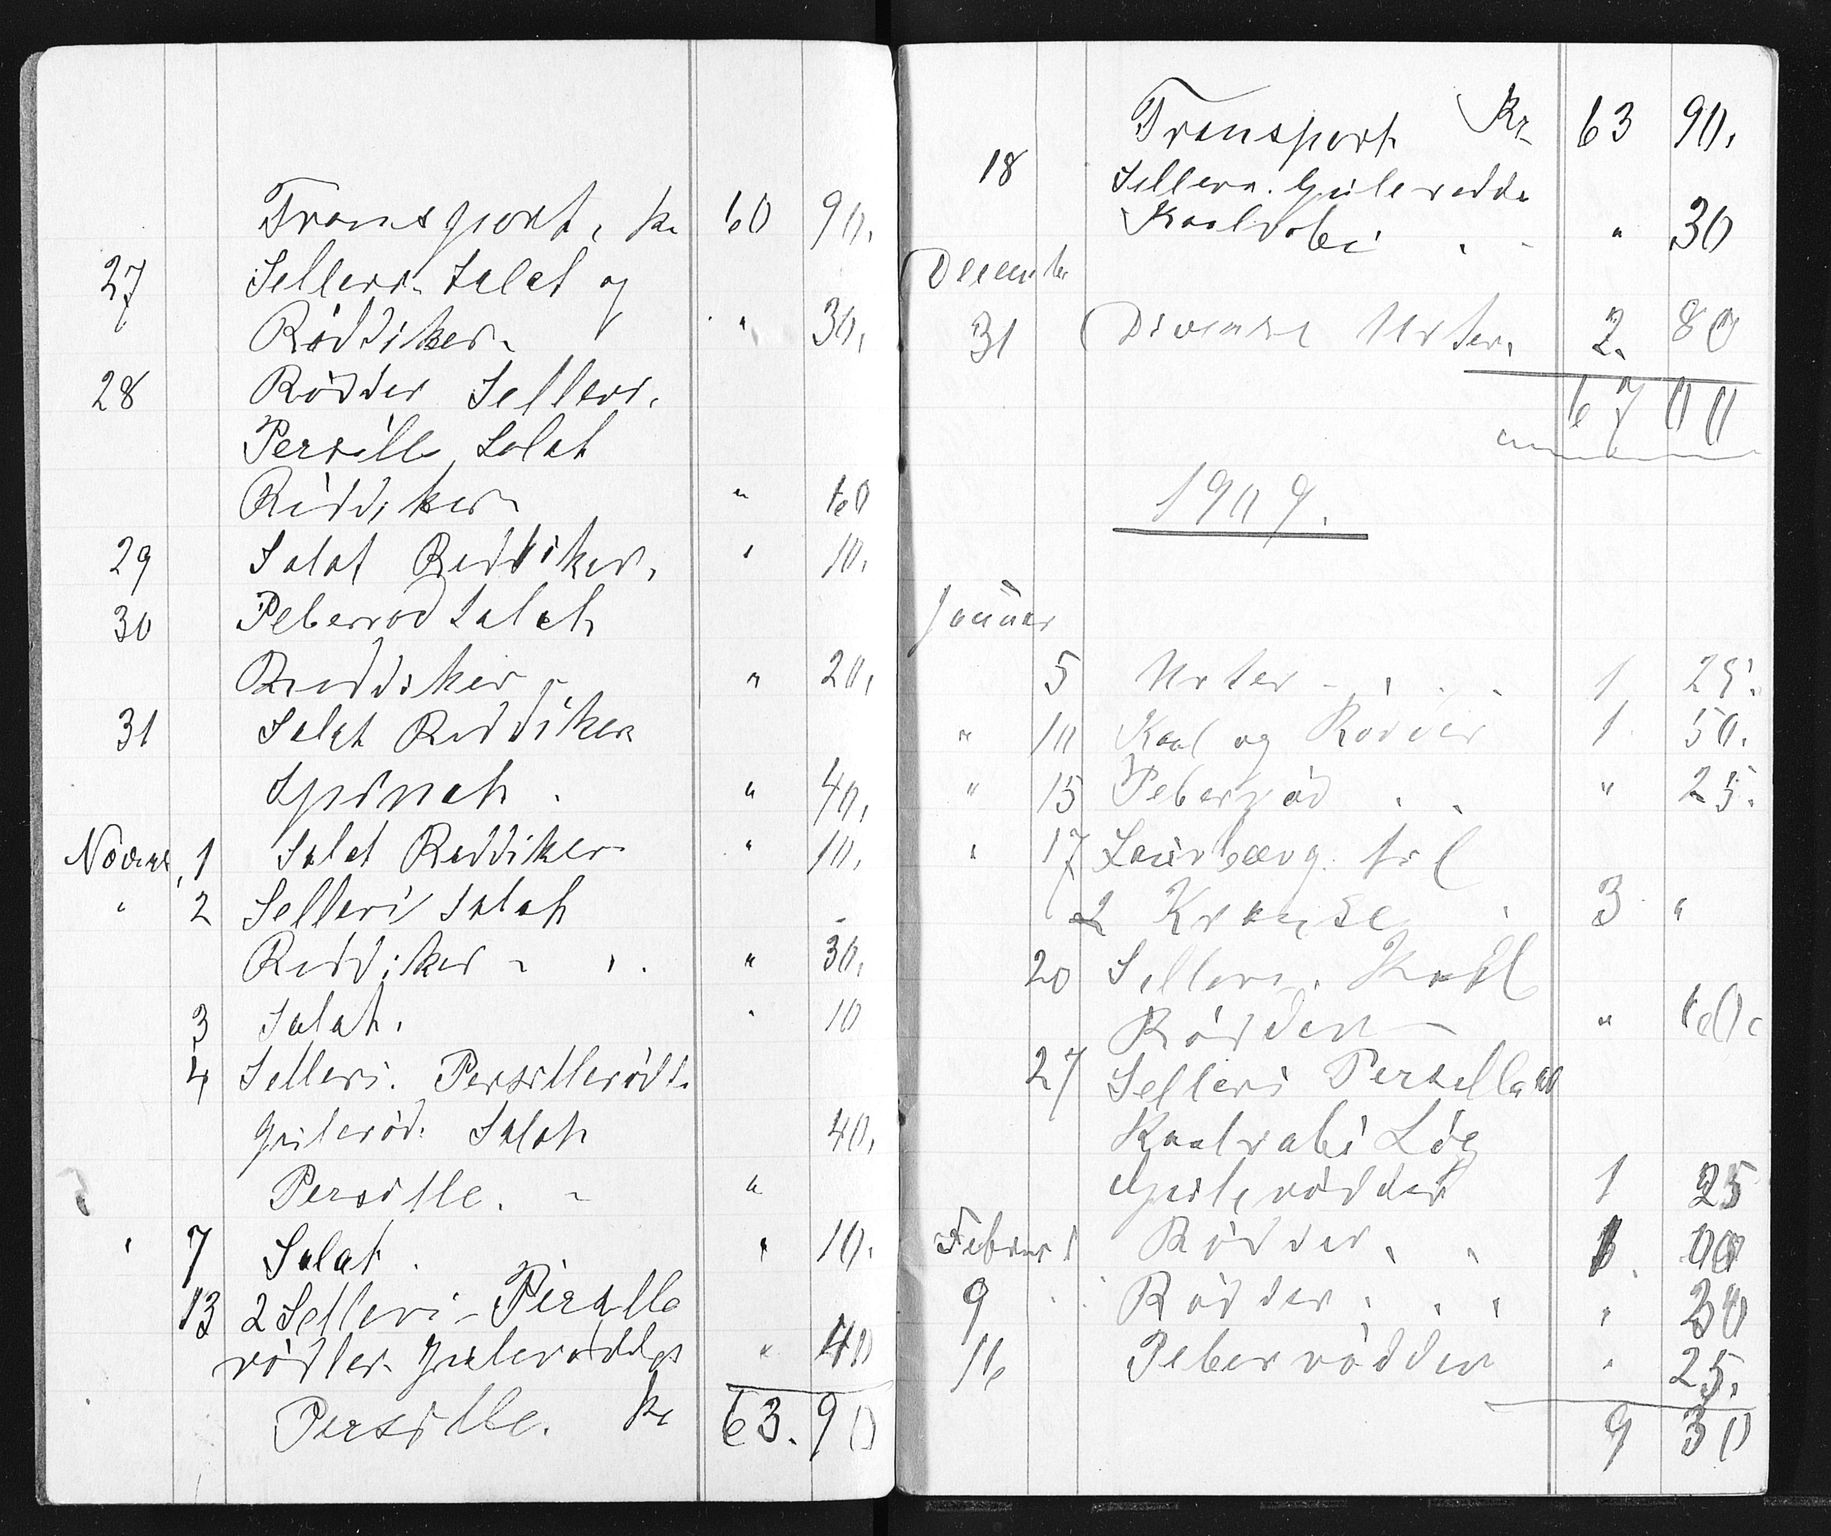 Transport. kr 60 90.
27 Selleri. Salat og
Röddiker. " 30.
28 Rödder Selleri.
Persille Salat
Rediker. " 60
29 Salat Reddiker. " 10.
30 Peberrod Salat.
Reddiker - " 20.
31 Salat Reddiker
Spinat. " 40.
Novem. 1 Salat Reddiker " 10.
" 2 Selleri Salat
Reddiker - " 30.
3 Salat. " 10
4 Selleri. Persillerödd.
Guleröd. Salat 40.
Persille. - "
" 7 Salat. " 10.
13 2 Selleri - Persille
rödder. Guleródder " 40
Persille. kr 63. 90
Transport Kr 63 90.
18 Selleri. Gulerødde
Kaalrabi . - " 30
December
31 Diverse Urter. 2. 80
67 00
1909.
Januar
5 Urter - . . . 1 25.
" 10 Kaal og Rödder 1. 50.
" 15 Peberrod . . " 25.
" 17 Laurbærg. til
2 Kranse 3 "
20 Selleri. Kaal
Rödder " 60
27 Selleri Persille
Kaalrabi Lög
Gulerödder 1 25
Februar 1 Rödder. . 1. 00
9 Rödder. . . " 30
16 Peberrödder " 25.
9 30